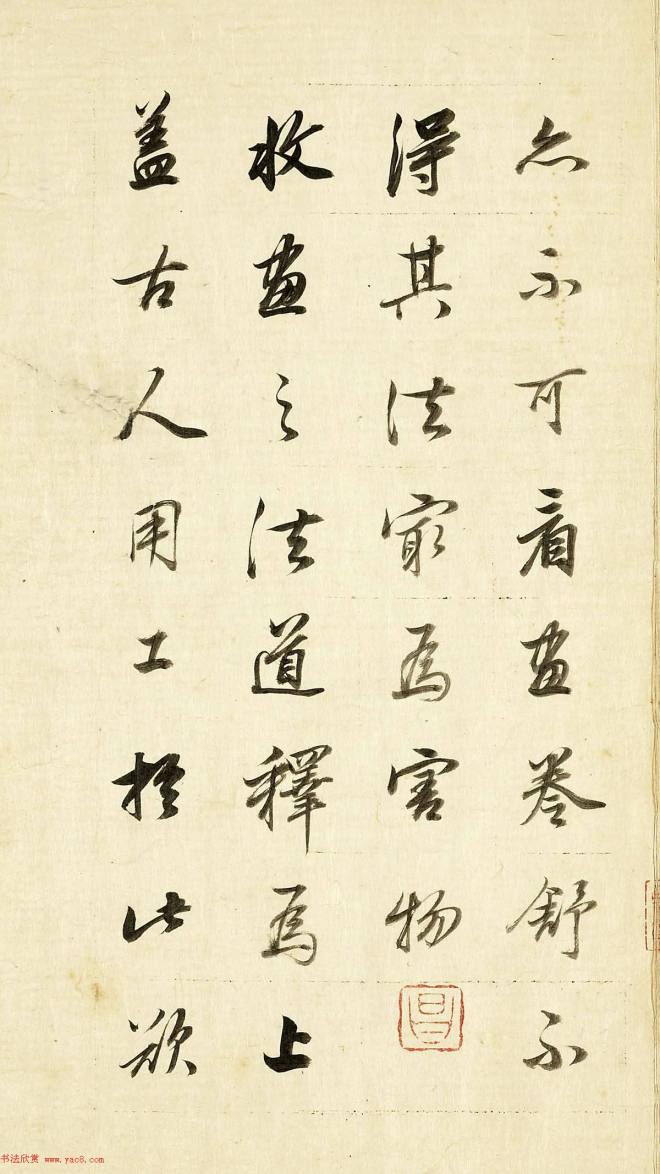 亦不可看画卷舒不
得其法最為害物
收画之法道釋為上
盖古人用工於此欲
昌
书法欣赏 www.yac8.com